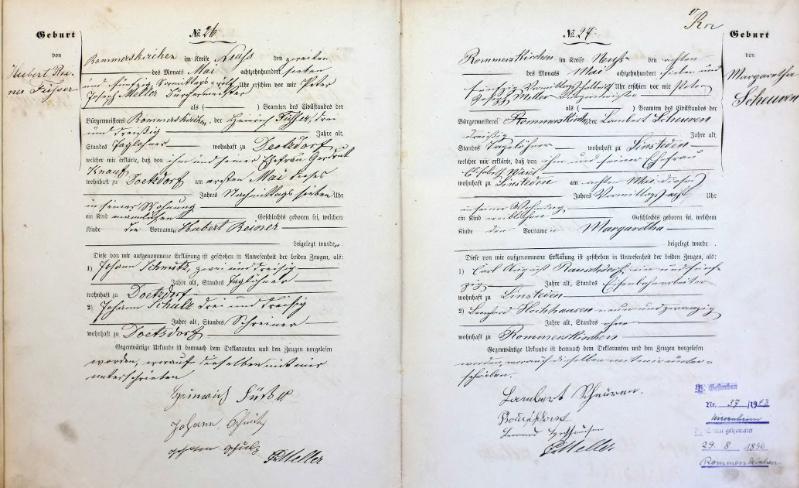 Geburt
von
Hubert
№ 26.
Rommerskirchen im Kreise Neuss den zweiten
des Monats Mai achtzehnhundert sieben
und fünfzig Vormittags Uhr erschien vor mir Peter
Joseph Meller Bürgermeister
als ( ) Beamten des Civilstandes der
Bürgermeisterei Rommerskirchen, der Heinrich drei
und dreißig Jahre alt,
Standes Taglöhner wohnhaft zu Doetzdorf
welcher mir erklärte, daß von ihm und seiner Ehefrau Gertrud
Knauf
wohnhaft zu Doetzdorf am ersten Mai dieses
Jahres Nachmittags sieben Uhr
in seiner Wohnung
ein Kind männlichen Geschlechts geboren sei, welchem
Kinde die Vorname Hubert
beigelegt wurde.
Diese von mir aufgenommene Erklärung ist geschehen in Anwesenheit der beiden Zeugen, als:
1) Johann Schmitz, zwei und dreißig
Jahre alt, Standes Taglöhner
wohnhaft zu Doetzdorf
2) Johann Schulz drei und dreißig
Jahre alt, Standes Schreiner
wohnhaft zu Doetzdorf
Gegenwärtige Urkunde ist demnach dem Deklaranten und den Zeugen vorgelesen
worden, worauf dieselben mit mir
unterschrieben
Heinrich
Johann Schmitz
Johann Schulz
PJMeller
№ 27.
Geburt
von
Margaretha
Scheuren
Rommerskirchen im Kreise Neuss den achten
des Monats Mai achtzehnhundert sieben und
fünfzig Vormittags Uhr erschien vor mir Peter
Joseph Meller Bürgermeister
als ( ) Beamten des Civilstandes der
Bürgermeisterei Rommerskirchen, der Lambert Scheuren
dreißig Jahre alt,
Standes Taglöhner wohnhaft zu Sinsteden
welcher mir erklärte, daß von ihm und seiner Ehefrau
Elisabeth
wohnhaft zu Sinsteden am achten Mai dieses
Jahres Vormittags Uhr
in seiner Wohnung
ein Kind weiblichen Geschlechts geboren sei, welchem
Kinde den Vornamen Margaretha
beigelegt wurde.
Diese von mir aufgenommene Erklärung ist geschehen in Anwesenheit der beiden Zeugen, als:
1) Carl August ein und fünf
zig Jahre alt, Standes
wohnhaft zu Sinsteden
2) neun und zwanzig
Jahre alt, Standes ohne
wohnhaft zu Rommerskirchen
Gegenwärtige Urkunde ist demnach dem Deklaranten und den Zeugen vorgelesen
worden, worauf dieselben mit mir unter-
schrieben.
Lambert Scheuren.
PJMeller
Gestorben
Nr. 37/19
29. 8 18
Rommerskirchen